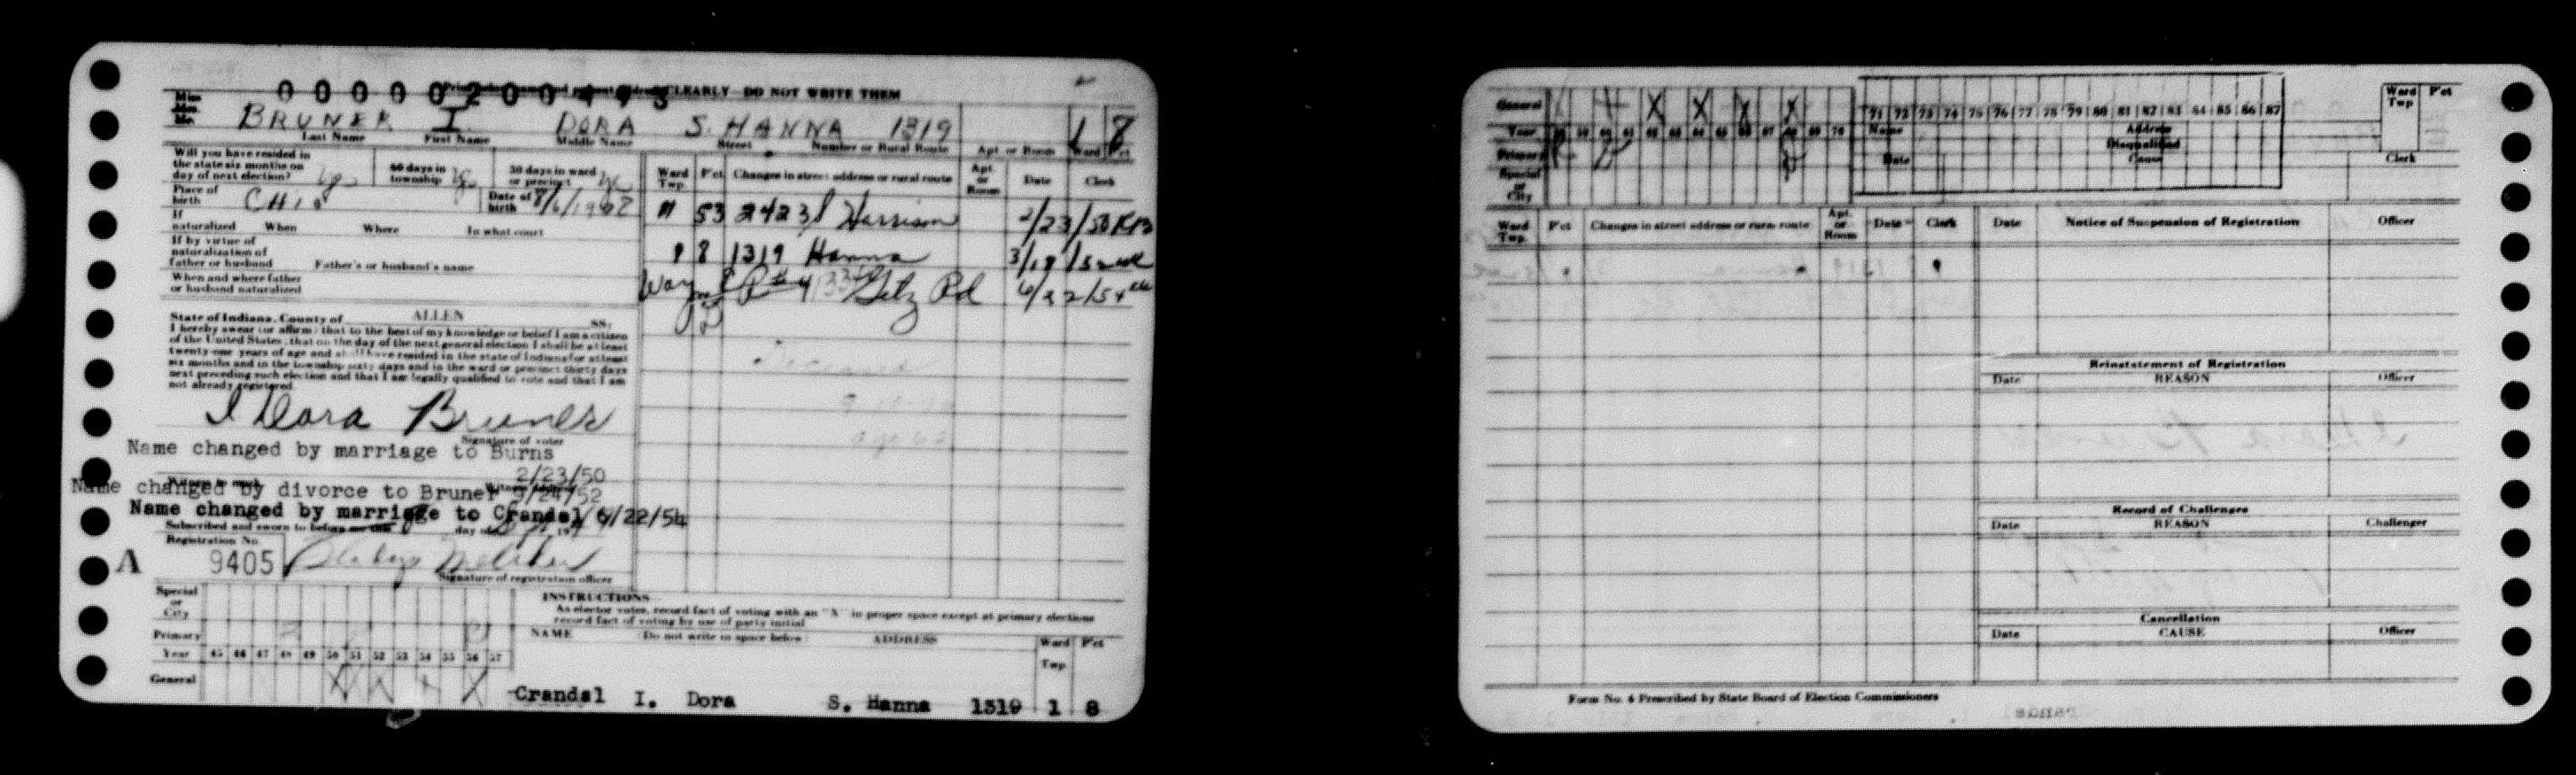 CLEARLY DO NOT WRITE THEM
Miss
Mrs.
Mr.
BRUNER I. DORA S. HANNA 1319 1 8
Last Name First Name Middle Name Street Number or Rural Route Apt. or Room Ward Pct
Will you have resided in
the state six months on
day of next election? yes
60 days in
township
30 days in ward
or precinct
Place of
birth OHIO
Date of
birth
If
naturalized When Where In what court
If by virtue of
naturalization of
father or husband Father's or husband's name
When and where father
or husband naturalized
State of Indiana, County of ALLEN ss.
I hereby swear (or affirm) that to the best of my knowledge or belief I am a citizen
of the United States, that on the day of the next general election I shall be at least
twenty-one years of age and shall have resided in the state of Indiana for at least
six months and in the township sixty days and in the ward or precinct thirty days
next preceding such election and that I am legally qualified to vote and that I am
not already registered.
I Dora Bruner
Signature of voter
Name changed by marriage to Burns
2/23/50
Name changed by divorce to Bruner 3/24/52
Name changed by marriage to Crandal 6/22/54
Subscribed and sworn to before me this day of
Registration No.
A 9405
Signature of registration officer
Ward
Twp. P'ct Changes in street address or rural route Apt.
or
Room Date Clerk
53 2423 S Harrison 2/23/50 KB
1 8 1319 Hanna
Getz Rd 6/22/54
Special
or
City
Primary
Year 45 46 47 48 49 50 51 52 53 54 55 56 57
General X X
INSTRUCTIONS
As elector votes, record fact of voting with an "X" in proper space except at primary elections
record fact of voting by use of party initial
NAME (Do not write in space below) ADDRESS Ward
Twp P'ct
Crandal I. Dora S. Hanna 1319 1 8
General X X X X
Year 61 62 63 64 65 67 69 70
Primary
Special
or
City
71 72 73 74 75 76 77 78 79 80 81 82 83 84 85 86 87
Name Address
Disqualified
Date Cause
Ward
Twp P'ct
Clerk
Ward
Twp. P'ct Changes in street address or rural route Apt.
or
Room Date Clerk
Date Notice of Suspension of Registration Officer
Reinstatement of Registration
Date REASON Officer
Record of Challenges
Date REASON Challenger
Cancellation
Date CAUSE Officer
Form No. 4 Prescribed by State Board of Election Commissioners